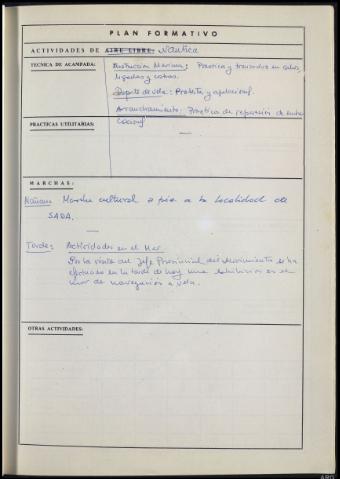 PLAN FORMATIVO
ACTIVIDADES DE AIRE LIBRE: Náutica
TECNICA DE ACAMPADA:
Instrucción Marinera: Practica y trenzados en cabos,
ligadas y costuras.
Deporte de vela: Práctica y
Arranchamiento: Practica de reparación de
PRACTICAS UTILITARIAS:
MARCHAS:
Mañana Marcha cultural a pie a la localidad de
SADA.
Tarde: Actividades en el Mar
Por la visita del Jefe Provincial del Movimiento se ha
efectuado en la tarde de hoy una exhibición en el
mar de navegación a vela.
OTRAS ACTIVIDADES:
ARG